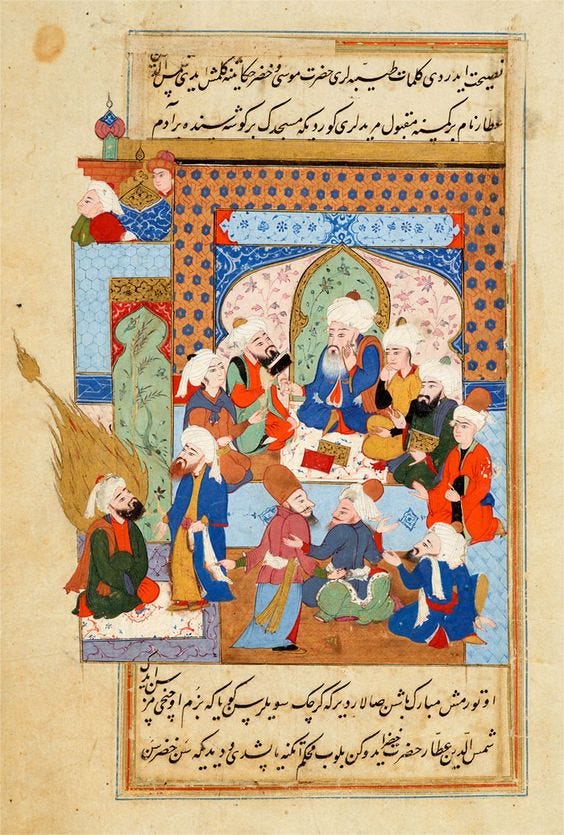 نصیحت ایدردی کلمات طیبه لری حضرت موسی و خضر حکایتنه کلمش ایدی شمس الدین
عطار نام بر کمینه مقبول مریدلری کوردیکه مسجدک بر کوشه سنده بر آدم
اوتورمش مبارک باشن صالار دیرکه کرچک سویلرسن کویا که بزم اوچنجی مز سن ایدک
شمس الدین عطار حضرت خضر ایدوکن بلوب محکم اتکنه یاپشدی و دیدیکه سن خضرسن